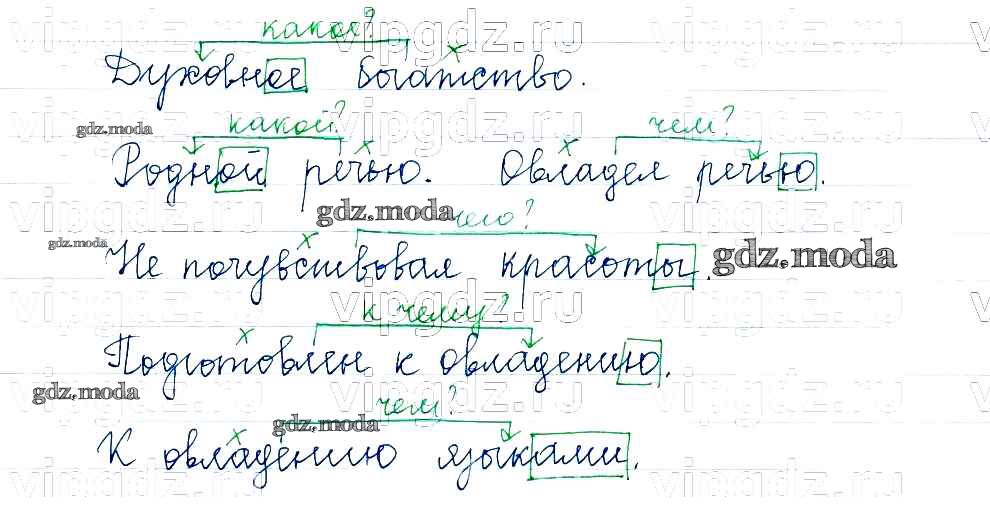 какое?
Духовное богатство.
какой? чем?
Родной речью. Овладел речью.
чего?
Не почувствовал красоты.
к чему?
Подготовлен к овладению.
чем?
К овладению языками.
vipgdz.ru
gdz.moda